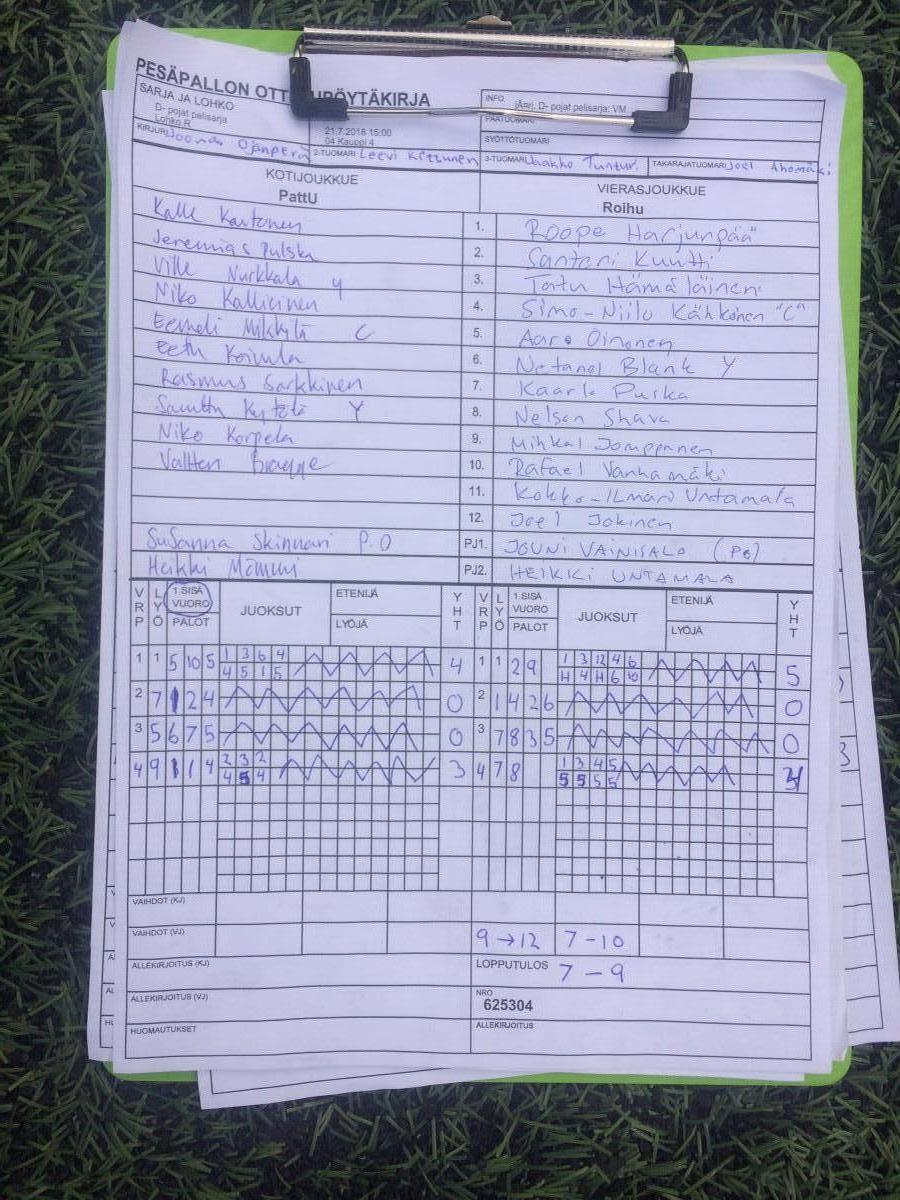 PESÄPALLON OTT PÖYTÄKIRJA
SARJA JA LOHKO
D- pojat pelisarja
Lohko R
21.7.2018 15:00
04 Kauppi 4
INFO jÄprj, D- pojat pelisarja: VM
PÄÄTUOMARI
SYÖTTÖTUOMARI
KIRJURI Joonas Ojanperä 2-TUOMARI Leevi Kettunen 3-TUOMARI Jaakko Tuntur. TAKARAJATUOMARI Joel Ahomäki
KOTIJOUKKUE VIERASJOUKKUE
PattU Roihu
Kalle 1. Roope Harjunpää
Jeremias Pulska 2. Santeri Kuutti
Ville Nurkkala y 3. Tatu Hämäläinen
Niko 4. Simo-Niilo Kähkönen "C"
Eemeli C 5. Aaro Oinonen
Eetu 6. Netanel Blank Y
Rasmus Sarkkinen 7. Kaarlo Purka
Y 8. Nelson Shava
Niko Korpela 9. Mihkal Jomppanen
10. Rafael Vanhamäki
11. Kokko-Ilmari Untamala
12. Joel Jokinen
Susanna Skinnari P.O PJ1. JOUNI VAINISALO (PO)
Heikki PJ2. HEIKKI UNTAMALA
VRP LYÖ 1.SISÄ VUORO PALOT JUOKSUT ETENIJÄ LYÖJÄ YHT VRP LYÖ 1.SISÄ VUORO PALOT JUOKSUT ETENIJÄ LYÖJÄ YHT
1 1 5 10 5 1 3 6 4 4 1 1 2 9 1 3 12 4 6 5
4 5 1 5 11 4 11 6 10
2 7 1 2 4 0 2 1 4 2 6 0
3 5 6 7 5 0 3 7 8 3 5 0
4 9 1 1 4 2 3 2 3 4 7 8 1 3 4 5 4
4 5 4 5 5 5 5
VAIHDOT (KJ)
VAIHDOT (VJ) 9 → 12 7 - 10
ALLEKIRJOITUS (KJ) LOPPUTULOS 7 - 9
ALLEKIRJOITUS (VJ) NRO
625304
HUOMAUTUKSET ALLEKIRJOITUS